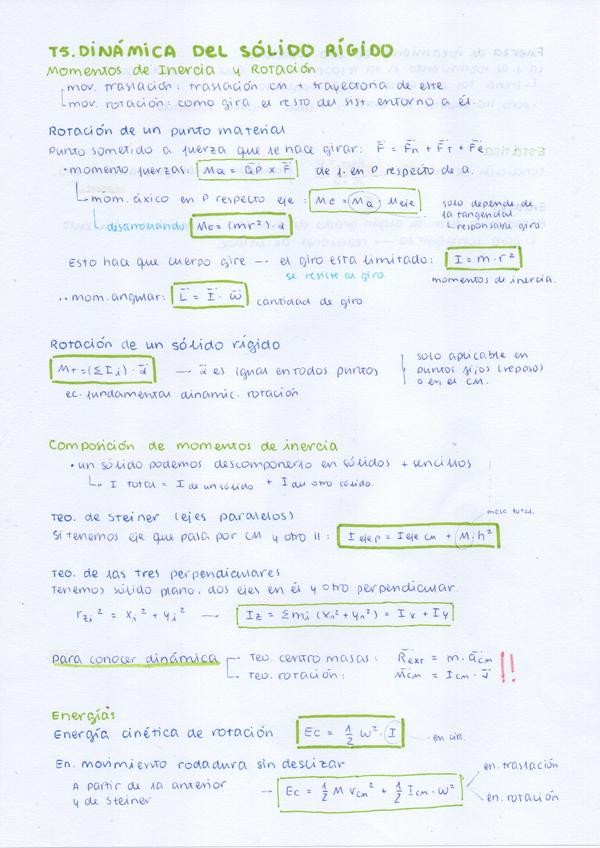 T5. DINÁMICA DEL SÓLIDO RÍGIDO
Momentos de Inercia y Rotación
mov. traslación: traslación CM + trayectoria de este
mov. rotación: como gira el resto del sist entorno a él.
Rotación de un punto material
Punto sometido a fuerza que se hace girar: F⃗ = F⃗n + F⃗T + F⃗e
• momento fuerzas: M⃗a = Q⃗P x F⃗ de f. en P respecto de a.
mom. áxico en P respecto eje: ME = M⃗a · μeje
solo depende de
la tangencial.
responsable giro.
desarrollando: ME = (mr²) α
Esto hace que cuerpo gire — el giro esta limitado: I = m·r²
se resiste al giro.
momentos de inercia.
•• mom. angular: L⃗ = I · ω⃗ cantidad de giro
Rotación de un sólido rígido
MT = (Σ Ii) · α⃗ — α⃗ es igual en todos puntos
solo aplicable en
puntos fijos (reposo)
o en el CM.
ec. fundamental dinamic. rotación
Composición de momentos de inercia
• un sólido podemos descomponerlo en sólidos + sencillos
I total = I de un sólido + I del otro sólido.
Teo. de Steiner (ejes paralelos)
masa total.
Si tenemos eje que pasa por CM y otro ||: I eje p = I eje cm + M·h²
Teo. de las tres perpendiculares
Tenemos sólido plano, dos ejes en él y otro perpendicular.
rzi² = xi² + yi² — Iz = Σmi (xi² + yi²) = Ix + Iy
Para conocer dinámica
Teo. centro masas: R⃗ext = m · a⃗cm
Teo. rotación: M⃗cm = Icm · α⃗ !!
Energías
Energía cinética de rotación Ec = 1/2 ω² · I · en CIR.
En. movimiento rodadura sin deslizar
en. traslación
A partir de la anterior
y de Steiner — Ec = 1/2 M vcm² + 1/2 Icm · ω²
en. rotación